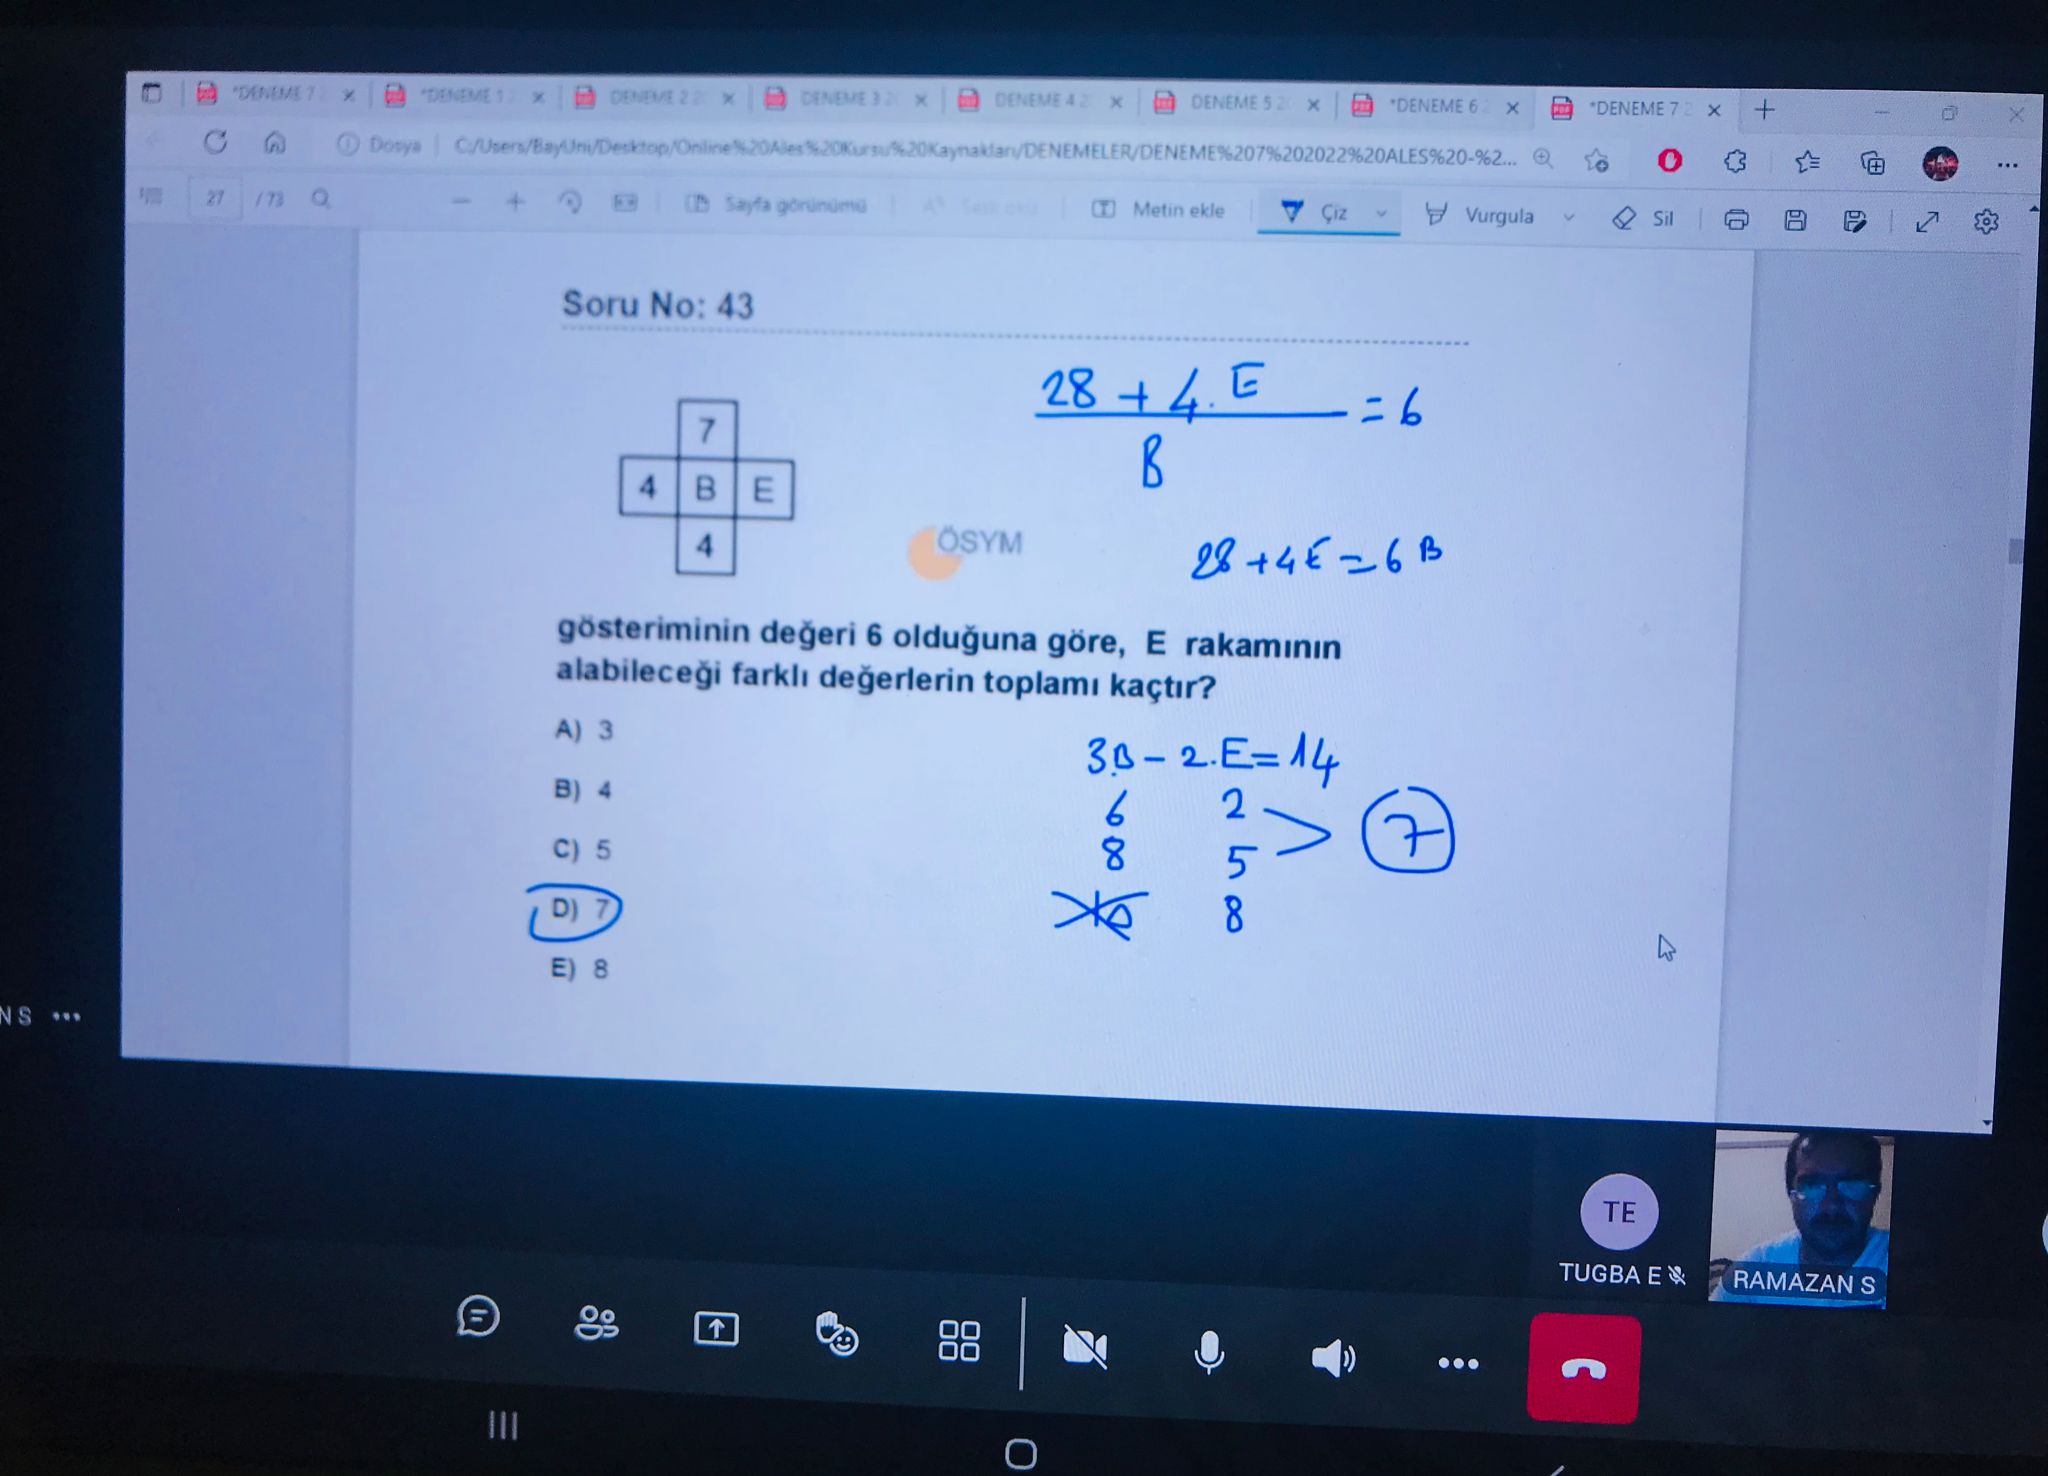 *DENEME 7 2 DENEME 1 2 DENEME 2 2 DENEME 3 2 DENEME 4 2 DENEME 5 2 *DENEME 6 2 *DENEME 7 2
Dosya C:/Users/BayUni/Desktop/Online%20Ales%20Kursu%20Kaynakları/DENEMELER/DENEME%207%202022%20ALES%20-%2...
27 / 73 Sayfa görünümü Metin ekle Çiz Vurgula Sil
Soru No: 43
28 + 4.E
= 6
B
7
4 B E
4
ÖSYM
28 + 4E = 6B
gösteriminin değeri 6 olduğuna göre, E rakamının
alabileceği farklı değerlerin toplamı kaçtır?
A) 3
B) 4
C) 5
D) 7
E) 8
3B - 2.E = 14
6 2
8 5
7
8
NS
TE
TUGBA E
RAMAZAN S